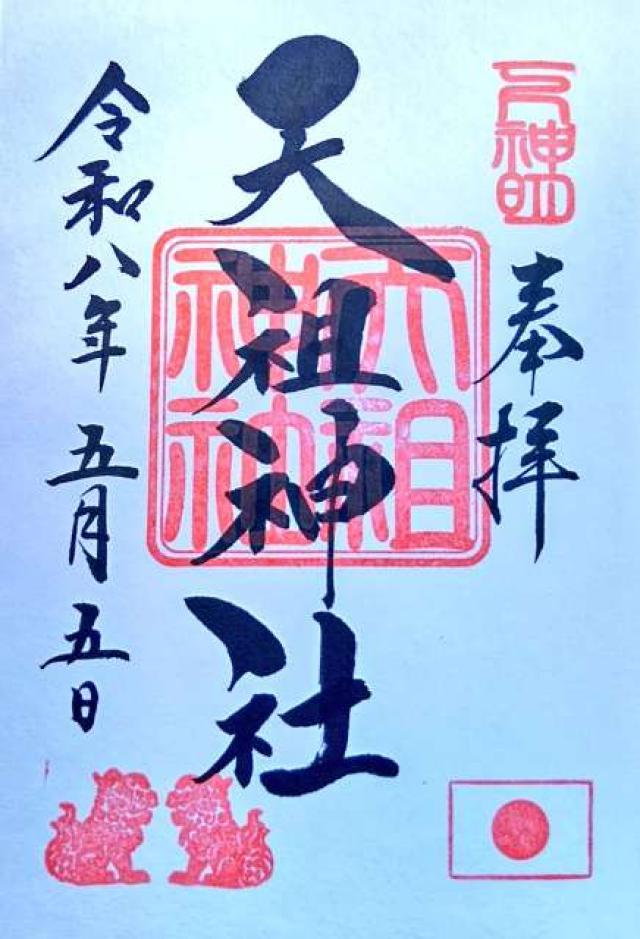 奉拝
天祖神社
天祖神社
令和八年五月五日